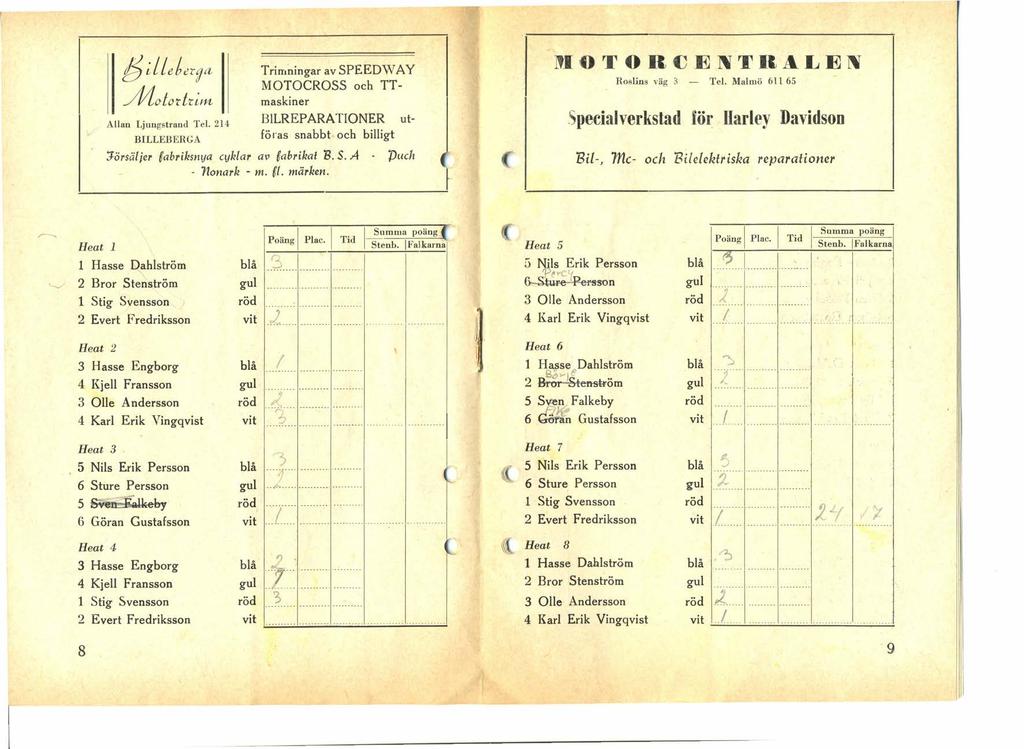 Billeberga
Motortrim
Allan Ljungstrand Tel. 214
BILLEBERGA
Trimningar av SPEEDWAY
MOTOCROSS och TT-
maskiner
BILREPARATIONER ut-
föras snabbt och billigt
Försäljer fabriksnya cyklar av fabrikat B.S.A - Puch
- Monark - m. fl. märken.
Poäng Plac. Tid Summa poäng
Stenb. Falkarna
Heat 1
1 Hasse Dahlström blå 3
2 Bror Stenström gul
1 Stig Svensson röd
2 Evert Fredriksson vit 2
Heat 2
3 Hasse Engborg blå 1
4 Kjell Fransson gul
3 Olle Andersson röd 2
4 Karl Erik Vingqvist vit 3
Heat 3
5 Nils Erik Persson blå 3
6 Sture Persson gul 2
5 Sven Falkeby röd
6 Göran Gustafsson vit 1
Heat 4
3 Hasse Engborg blå 2
4 Kjell Fransson gul 1
1 Stig Svensson röd 3
2 Evert Fredriksson vit
8
MOTORCENTRALEN
Roslins väg 3 — Tel. Malmö 611 65
Specialverkstad för Harley Davidson
Bil-, Mc- och Bilelektriska reparationer
Poäng Plac. Tid Summa poäng
Stenb. Falkarna
Heat 5
5 Nils Erik Persson blå 3
Percy
6 Sture Persson gul
3 Olle Andersson röd 2
4 Karl Erik Vingqvist vit 1
Heat 6
1 Hasse Dahlström blå 3
Börje
2 Bror Stenström gul 2
5 Sven Falkeby röd
6 Göran Gustafsson vit 1
Heat 7
5 Nils Erik Persson blå 3
6 Sture Persson gul 2
1 Stig Svensson röd
2 Evert Fredriksson vit 1 24 17
Heat 8
1 Hasse Dahlström blå 3
2 Bror Stenström gul
3 Olle Andersson röd 2
4 Karl Erik Vingqvist vit 1
9